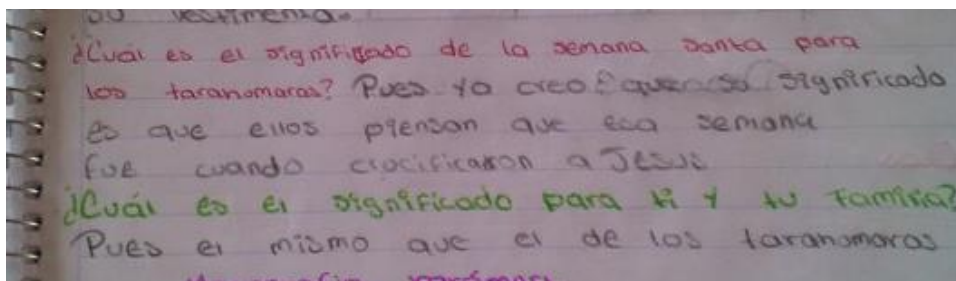 su vestimenta.
¿Cuál es el significado de la semana santa para
los taranomaras? Pues yo creo que su significado
es que ellos piensan que esa semana
fue cuando crucificaron a Jesus
¿Cuál es el significado para ti y tu familia?
Pues el mismo que el de los taranomaras